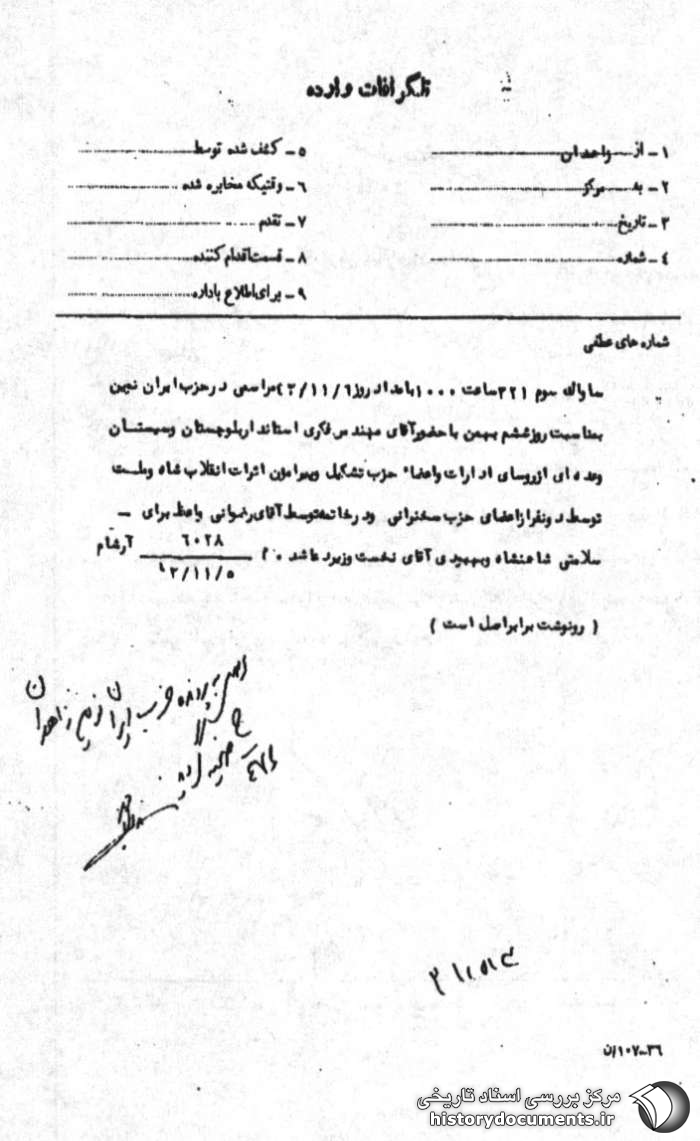 تلگرافات وارده
۱ـ از زاهدان
۲ـ به مرکز
۳ـ تاریخ
۴ـ شماره
۵ـ کشف شده توسط
۶ـ وقتیکه مخابره شده
۷ـ تقدم
۸ـ قسمت اقدام کننده
۹ـ برای اطلاع باداره
شماره های عطفی
ساواک سوم ۳۲۱ ساعت ۱۰۰۰ بامداد روز ۲/۱۱/۶ مراسمی در حزب ایران نوین
بمناسبت روز ششم بهمن با حضور آقای مهندس فکری استاندار بلوچستان و سیستان
وعده ای از روسای ادارات واعضاء حزب تشکیل و پیرامون اثرات انقلاب شاه وملت
توسط دونفر از اعضای حزب سخنرانی ودر خاتمه توسط آقای رضوانی واعظ برای ـ
سلامتی شاهنشاه وبهبودی آقای نخست وزیر دعا شد ۰ ۶۰۲۸ آرشام
۴۲/۱۱/۵
( رونوشت برابر اصل است )
به پرونده حزب ایران نوین زاهدان
ضمیمه
۳۶ـ۱۰۷/ن
مرکز بررسی اسناد تاریخی
historydocuments.ir